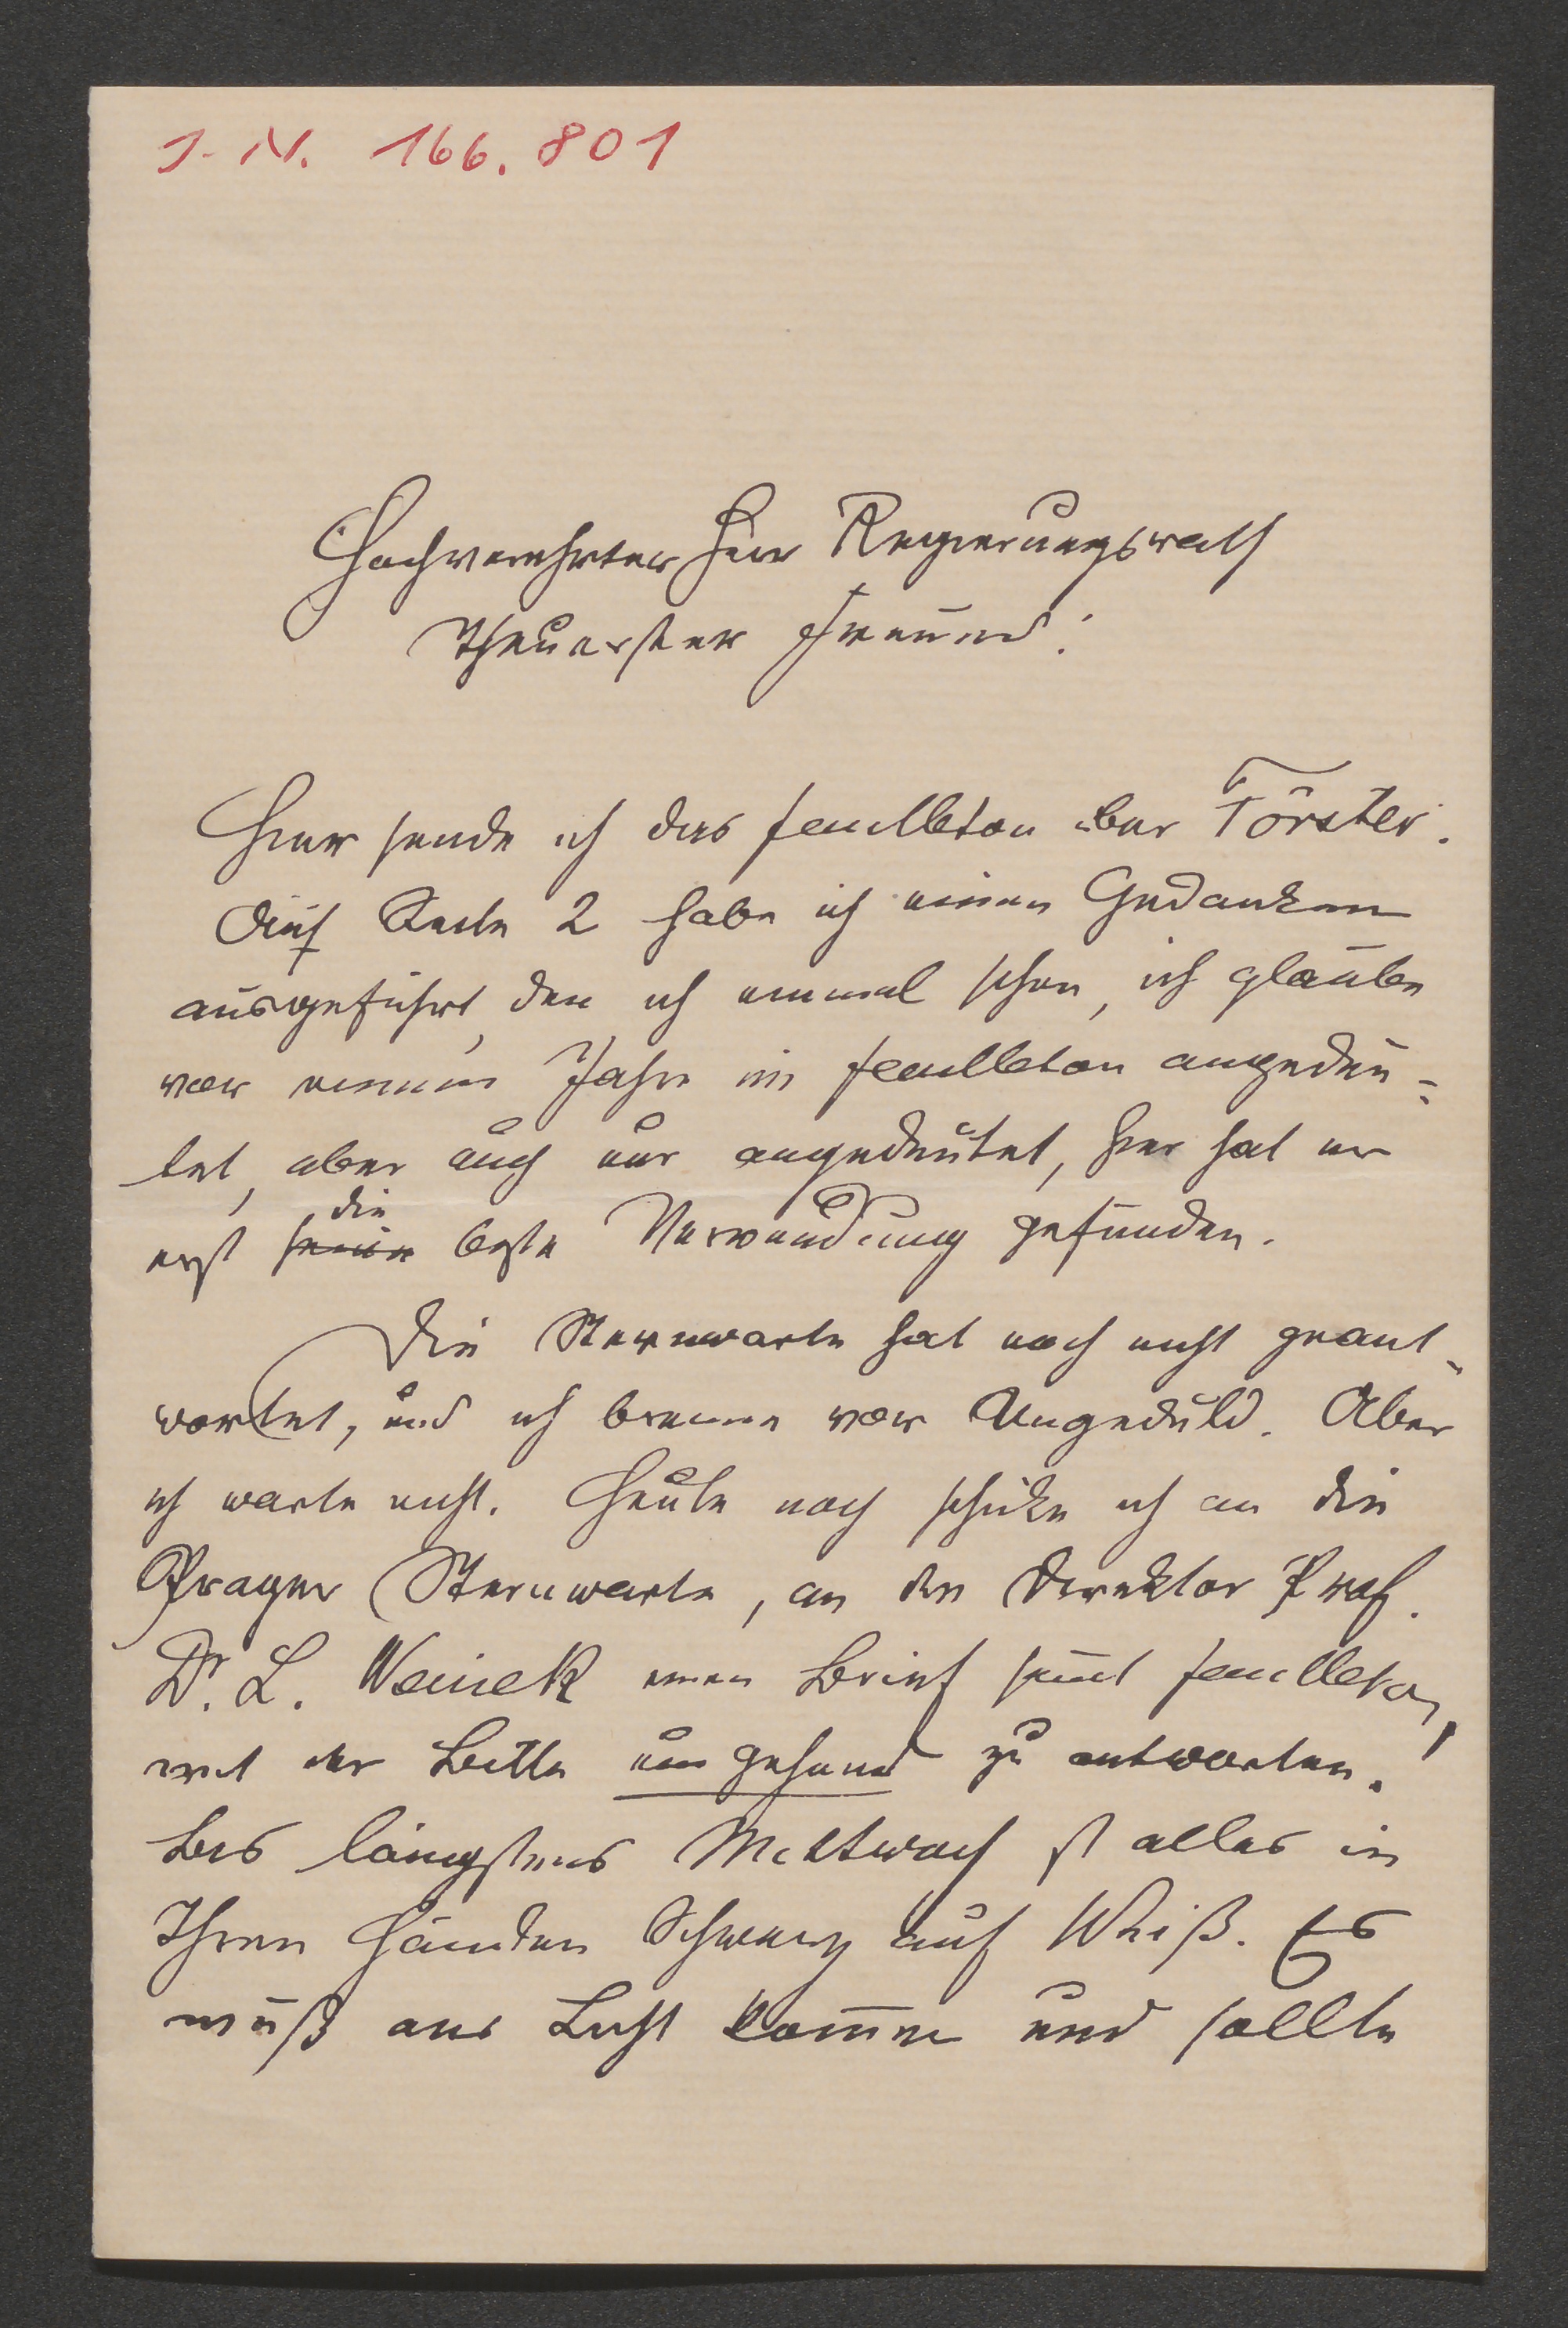 J. N. 166.801
Hochverehrter Herr Regierungsrath
Theuerster Freund!
Hier sende ich das Feuilleton über Förster.
Auf Seite 2 habe ich einen Gedanken
ausgeführt, den ich einmal schon, ich glaube
vor einem Jahre im Feuilleton angedeu=
tet, aber auch nur angedeutet, hier hat er
die
erst seine beste Verwendung gefunden.
Die Sternwarte hat noch nicht geant-
wortet, und ich brenne vor Ungeduld. Aber
ich warte nicht. Heute noch schicke ich an die
Prager Sternwarte, an den Direktor Prof.
Dr. L. Weinek einen Brief samt Feuilleton,
mit der Bitte umgehend zu antworten.
Bis längstens Mittwoch ist alles in
Ihren Händen Schwarz auf Weiß. Es
muß ans Licht kommen und sollte